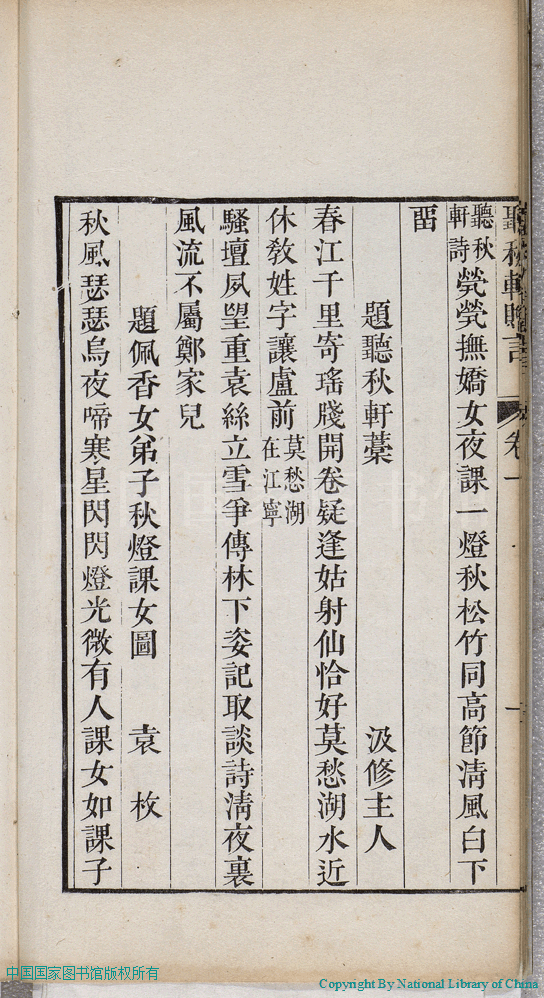 聽秋軒贈言 卷一 一
聽秋軒詩煢煢撫嬌女夜課一燈秋松竹同高節淸風白下
畱
題聽秋軒藁 汲修主人
春江千里寄瑤牋開卷疑逢姑射仙恰好莫愁湖水近
休敎姓字讓盧前莫愁湖在江寧
騷壇夙望重袁絲立雪爭傳林下姿記取談詩淸夜裏
風流不屬鄭家兒
題佩香女弟子秋燈課女圖 袁枚
秋風瑟瑟烏夜啼寒星閃閃燈光微有人課女如課子
中国国家图书馆版权所有
Copyright By National Library of China